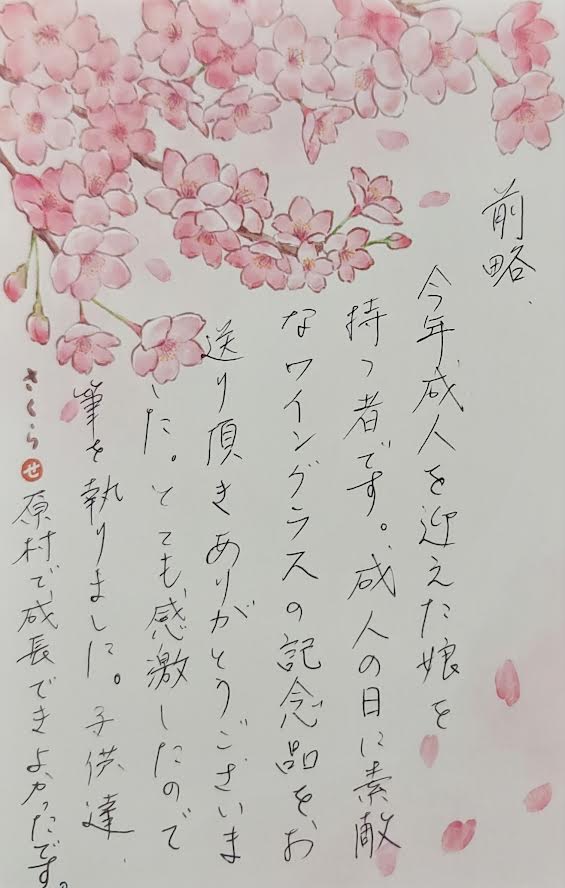 前略、
今年成人を迎えた娘を
持つ者です。成人の日に素敵
なワイングラスの記念品を、お
送り頂きありがとうございま
した。とても感激したので
筆を執りました。子供達、
原村で成長できよかったです。
さくら
せ